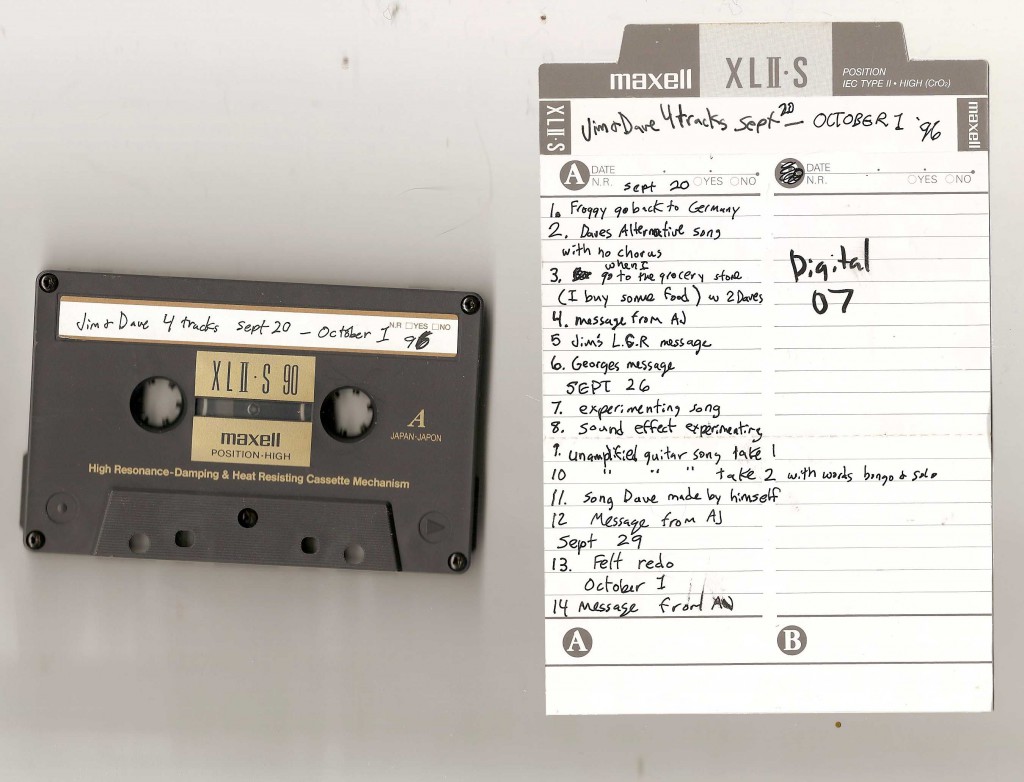 Jim & Dave 4 tracks sept 20 — October 1 96
N.R □YES □NO
XLII·S 90
maxell
POSITION·HIGH
A
JAPAN·JAPON
High Resonance-Damping & Heat Resisting Cassette Mechanism
maxell XLII·S POSITION
IEC TYPE II • HIGH (CrO₂)
XLII·S
maxell
Jim & Dave 4 tracks Sept 20 — OCTOBER 1 '96
A DATE
N.R. sept 20 ○YES ○NO
DATE
N.R. ○YES ○NO
1. Froggy go back to Germany
2. Daves Alternative song
with no chorus
3. when I go to the grocery store
(I buy some food) w 2 Daves
4. message from AJ
5 Jim's L.G.R message
6. Georges message
SEPT 26
7. experimenting song
8. sound effect experimenting
9. unamplified guitar song take 1
10 " " " take 2 with words bongo & solo
11. song Dave made by himself
12 Message from AJ
Sept 29
13. Felt redo
October 1
14 Message from
Digital
07
A
B